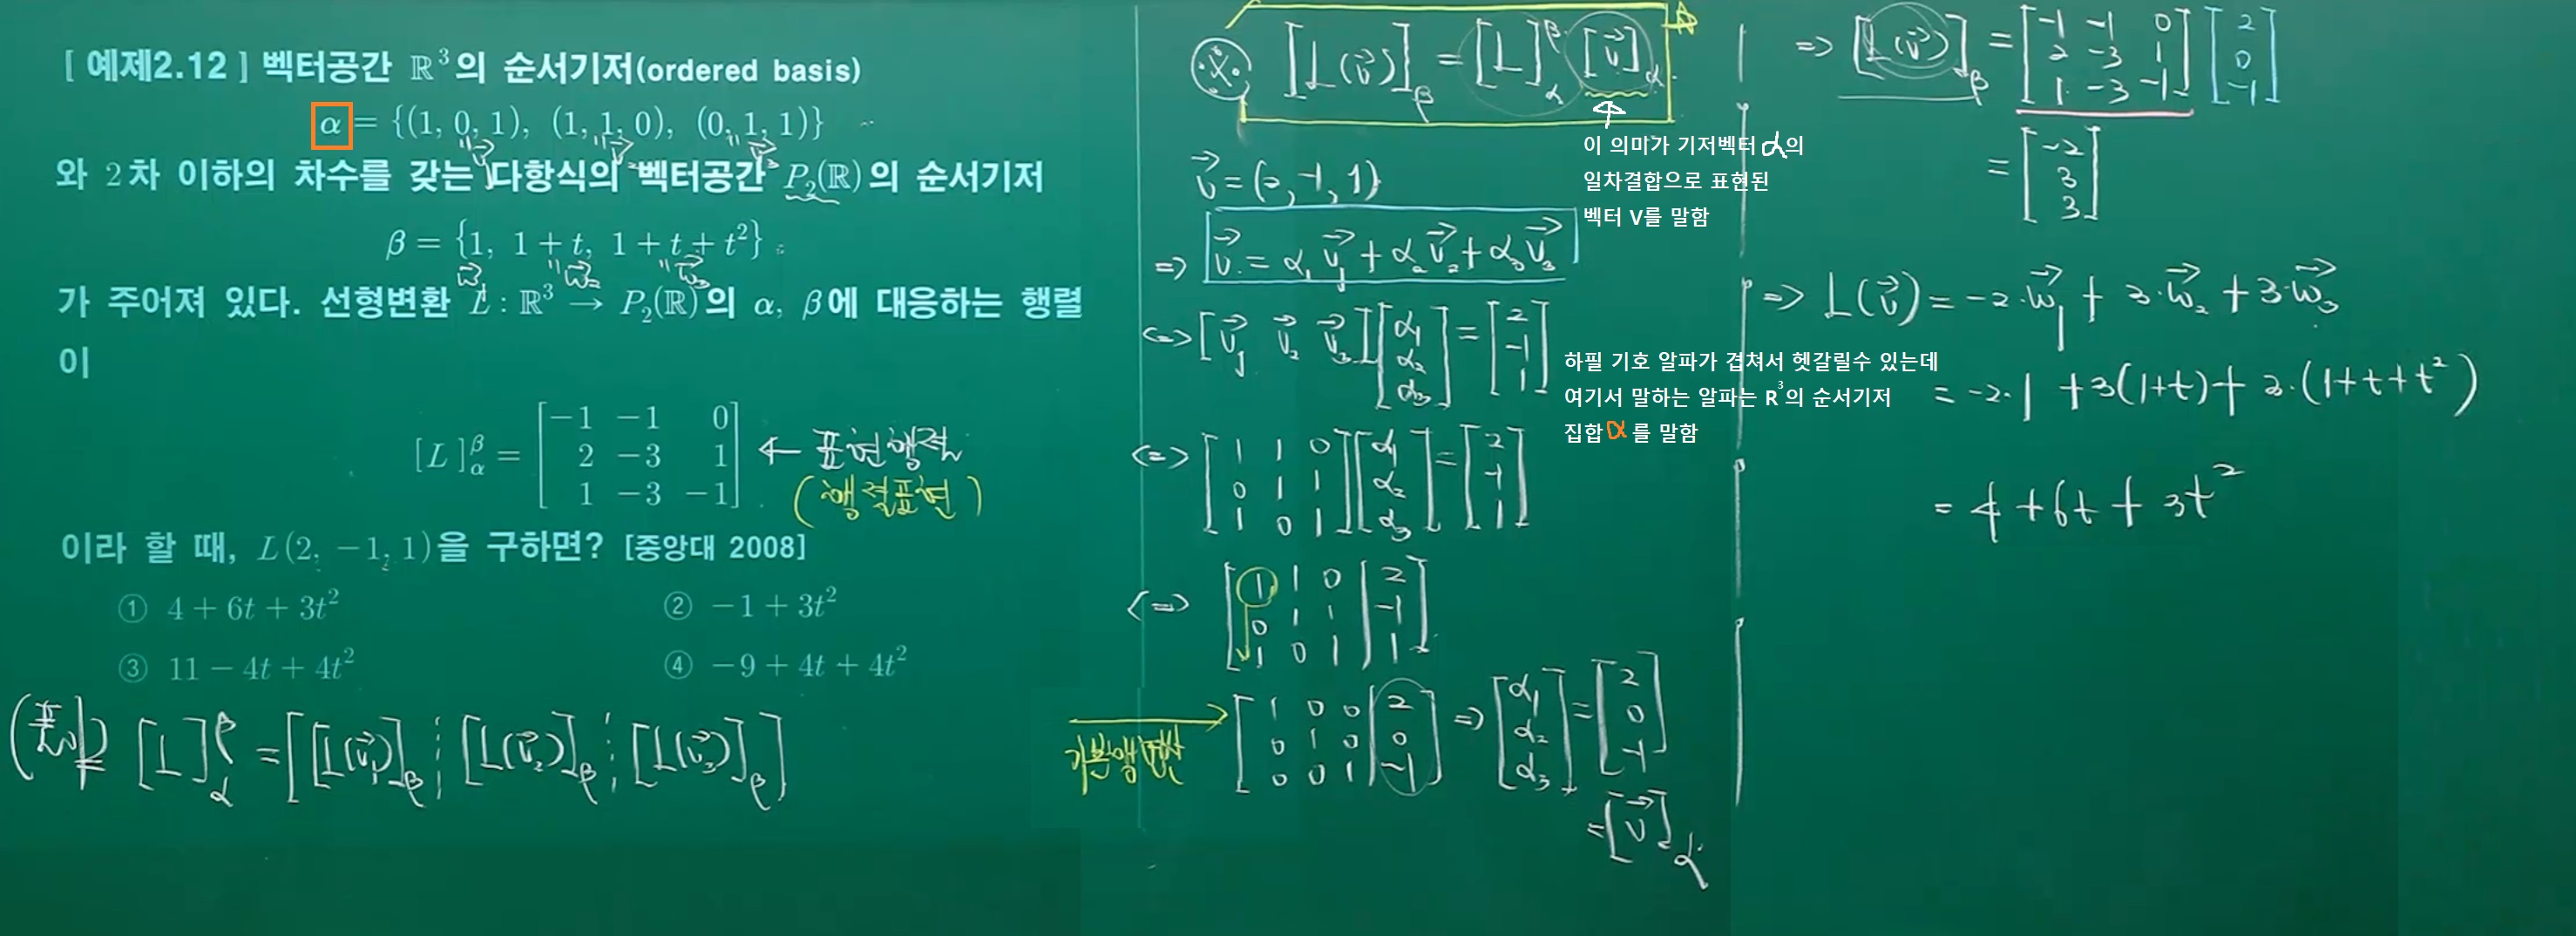 [ 예제2.12 ] 벡터공간 ℝ³의 순서기저(ordered basis)
α = {(1, 0, 1), (1, 1, 0), (0, 1, 1)}
" v₁ " v₂ " v₃
와 2차 이하의 차수를 갖는 다항식의 벡터공간 P₂(ℝ)의 순서기저
β = {1, 1 + t, 1 + t + t²}
w₁ " w₂ " w₃
가 주어져 있다. 선형변환 L : ℝ³ → P₂(ℝ)의 α, β에 대응하는 행렬
이
[L]_α^β = [−1 −1 0
2 −3 1
1 −3 −1] ← 표현행렬
(행렬표현)
이라 할 때, L(2, −1, 1)을 구하면? [중앙대 2008]
① 4 + 6t + 3t² ② −1 + 3t²
③ 11 − 4t + 4t² ④ −9 + 4t + 4t²
(풀이) [L]_α^β = [[L(v₁)]_β ⋮ [L(v₂)]_β ⋮ [L(v₃)]_β]
※ [L(v)]_β = [L]_α^β [v]_α
이 의미가 기저벡터 α의
일차결합으로 표현된
벡터 V를 말함
v = (2, -1, 1)
⇒ v = α₁v₁ + α₂v₂ + α₃v₃
⇔ [v₁ v₂ v₃] [α₁ α₂ α₃] = [2 -1 1]
하필 기호 알파가 겹쳐서 헷갈릴수 있는데
여기서 말하는 알파는 R³의 순서기저
집합 α 를 말함
⇔ [1 1 0
0 1 1
1 0 1] [α₁ α₂ α₃] = [2 -1 1]
⇔ [1 1 0 | 2
0 1 1 | -1
1 0 1 | 1]
기본행연산 → [1 0 0 | 2
0 1 0 | 0
0 0 1 | -1] ⇒ [α₁ α₂ α₃] = [2 0 -1]
= [v]_α
⇒ [L(v)]_β = [-1 -1 0
2 -3 1
1 -3 -1] [2 0 -1]
= [-2 3 3]
⇒ L(v) = -2·w₁ + 3·w₂ + 3·w₃
= -2·1 + 3(1+t) + 3·(1+t+t²)
= 4 + 6t + 3t²